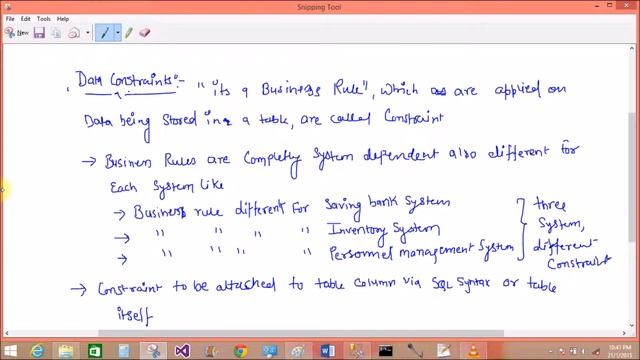 Snipping Tool
File Edit Tools Help
New
Data Constraints :- "its a Business Rule", which are applied on
Data being Stored in a table, are called Constraint
→ Business Rules are Completly System dependent also different for
Each System like
→ Business rule different For Saving bank System
→ " " " " " Inventory System
→ " " " " " Personnel management System
three
System,
different
Constraint
→ Constraint to be attached to table Column via SQL Syntax or table
itself
10:41 PM
21/1/2015